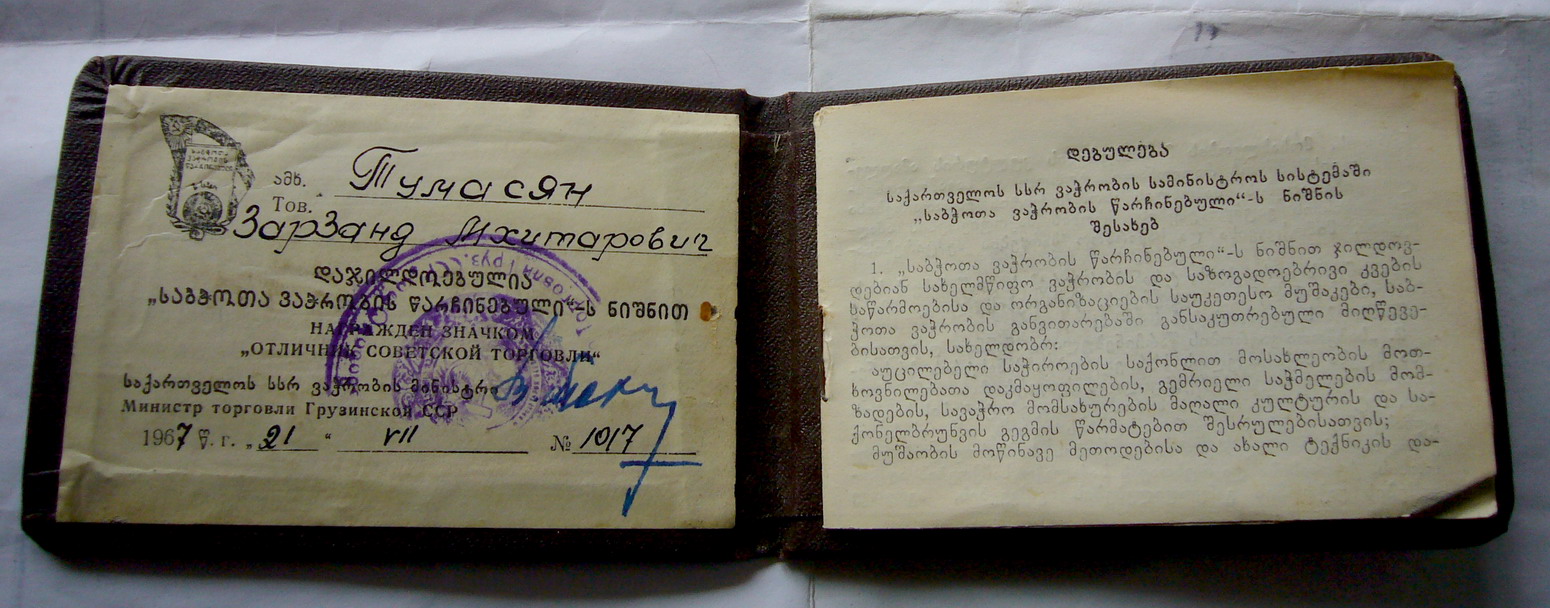 საბჭოთა
ვაჭრობის
წარჩინებული
ამხ. Тумасян
Тов.
Зарзанд Мхитарович
დაჯილდოებულია
„საბჭოთა ვაჭრობის წარჩინებული“-ს ნიშნით
НАГРАЖДЕН ЗНАЧКОМ
„ОТЛИЧНИК СОВЕТСКОЙ ТОРГОВЛИ“
საქართველოს სსრ ვაჭრობის მინისტრი
Министр торговли Грузинской ССР
1967 წ. г. „21“ VII № 1017
დებულება
საქართველოს სსრ ვაჭრობის სამინისტროს სისტემაში
„საბჭოთა ვაჭრობის წარჩინებული“-ს ნიშნის
შესახებ
1. „საბჭოთა ვაჭრობის წარჩინებული“-ს ნიშნით ჯილდოვ-
დებიან სახელმწიფო ვაჭრობის და საზოგადოებრივი კვების
საწარმოებისა და ორგანიზაციების საუკეთესო მუშაკები, საბ-
ჭოთა ვაჭრობის განვითარებაში განსაკუთრებული მიღწევე-
ბისათვის, სახელდობრ:
აუცილებელი საჭიროების საქონლით მოსახლეობის მოთ-
ხოვნილებათა დაკმაყოფილების, გემრიელი საჭმელების მომ-
ზადების, სავაჭრო მომსახურების მაღალი კულტურის და სა-
ქონელბრუნვის გეგმის წარმატებით შესრულებისათვის;
მუშაობის მოწინავე მეთოდებისა და ახალი ტექნიკის და-